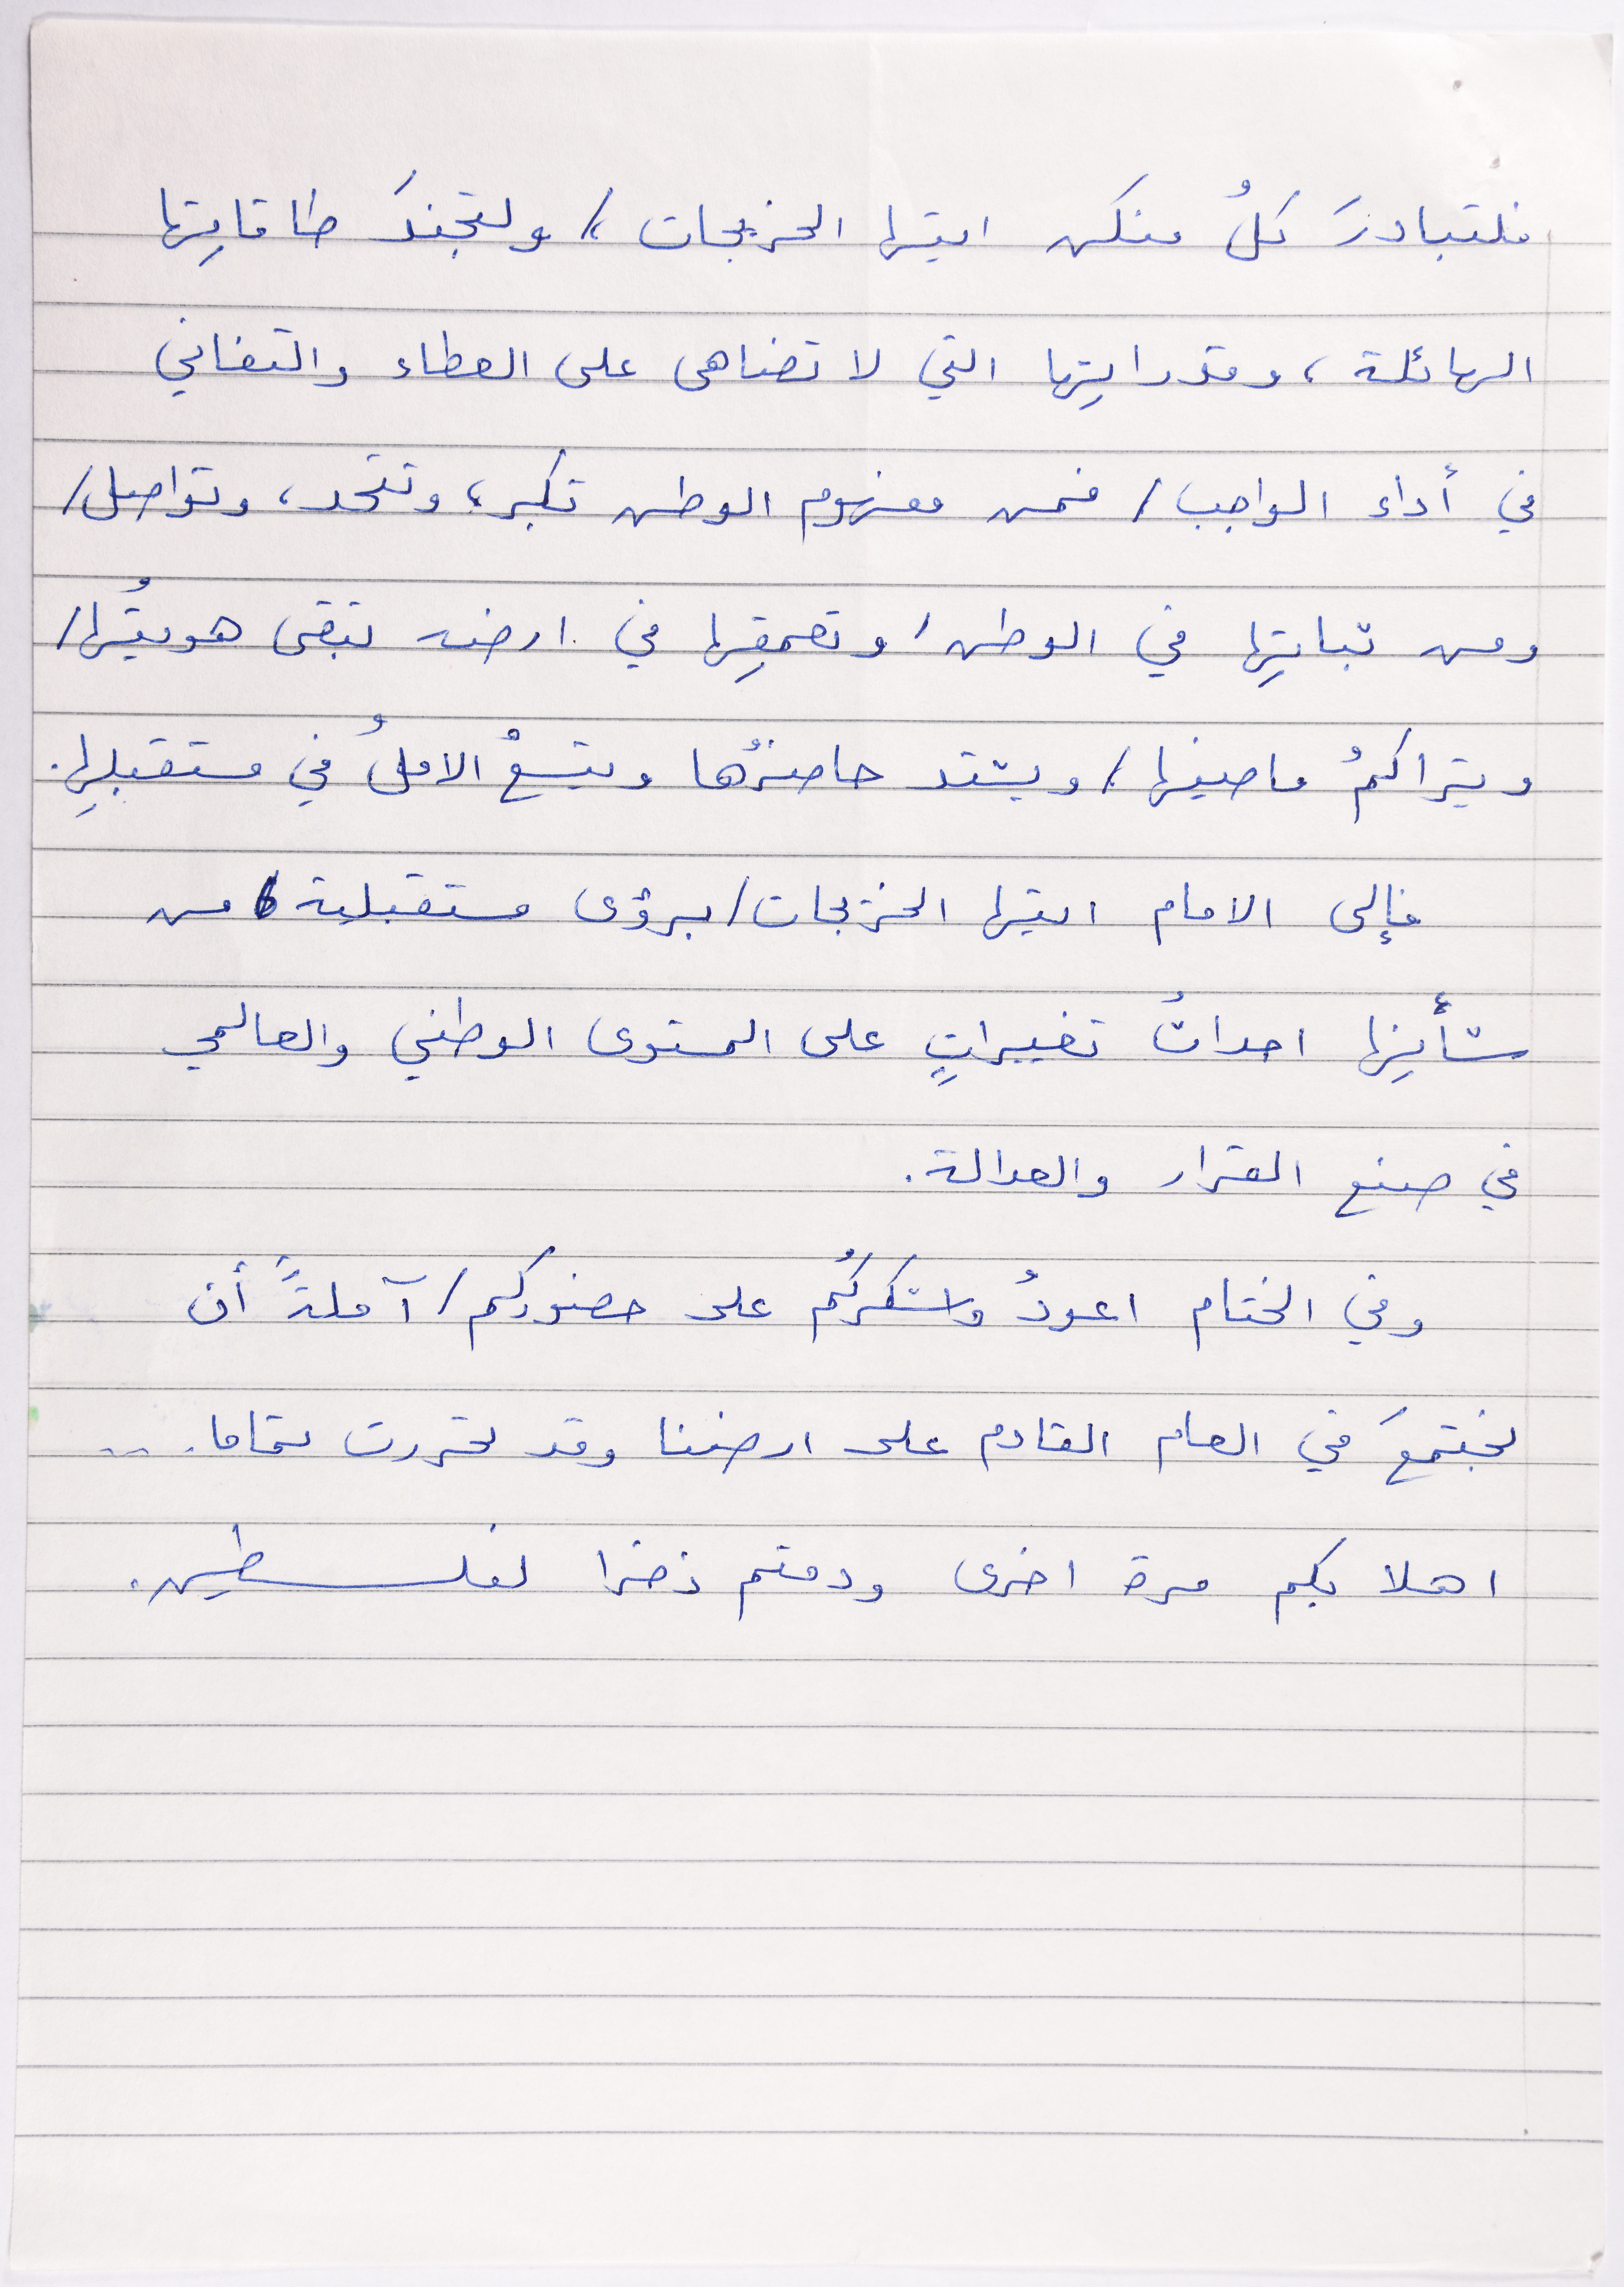 فلتبادرَ كلُ منكن ايتها الخريجات /، ولتجندَ طاقاتِها
الهائلة ، وقدراتِها التي لا تضاهى على العطاء والتفاني
في أداء الواجب / فمن مفهوم الوطن تكبر ، وتتحد ، وتواصل /
ومن ثباتِها في الوطن / وتعمقِها في ارضه تبقى هويتُها /
ويتراكمُ ماضيها /، ويشتد حاضرُها ويتسعُ الاملُ في مستقبلِها .
فإلى الامام ايتها الخريجات / برؤى مستقبلية / من
شأنِها احداثُ تغييراتٍ على المستوى الوطني والعالمي
في صنع القرار والعدالة .
وفي الختام اعودُ واشكركُم على حضوركم / آملةً أن
نجتمعَ في العام القادم على ارضنا وقد تحررت تماما . ...
اهلا بكم مرة اخرى ودمتم ذخرا لفلسطين .